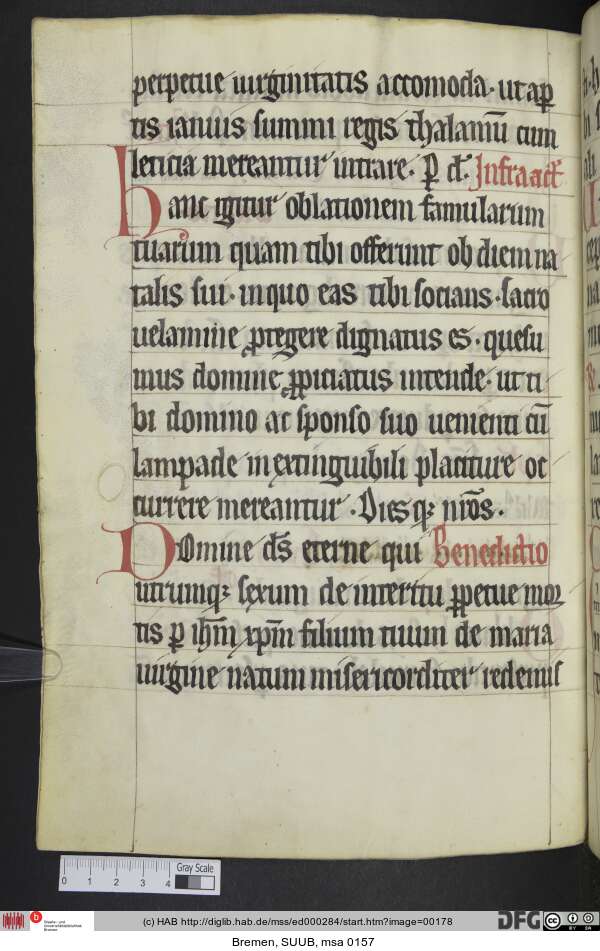 perpetue uirginitatis accomoda · ut ap
tis ianuis summi regis thalamū cum
leticia mereantur intrare · P d. Infra act
hanc igitur oblationem famularum
tuarum quam tibi offerunt ob diem na
talis sui · in quo eas tibi socians · sacro
uelamine ꝓtegere dignatus es · quesu
mus domine ꝓpiciatus intende · ut ti
bi domino ac sponso suo uenienti cū
lampade inextinguibili placiture oc
currere mereantur · Diesq; nr̄os ·
Domine ds̄ eterne qui Benedictio
utrumq; sexum de interitu ꝑpetue mor
tis ꝑ ihm̄ xpm̄ filium tuum de maria
uirgine natum misericorditer redemis
0 1 2 3 4
Gray Scale
Staats- und Universitätsbibliothek Bremen
(c) HAB http://diglib.hab.de/mss/ed000284/start.htm?image=00178
DFG
cc BY SA
Bremen, SUUB, msa 0157